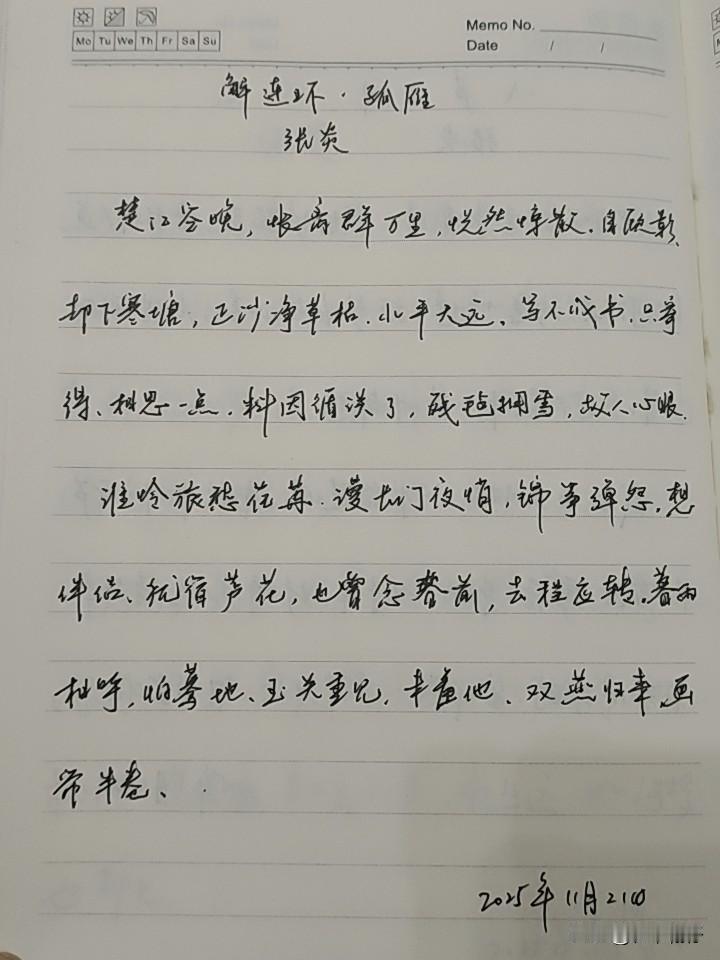 Mo Tu We Th Fr Sa Su
Memo No.
Date / /
解连环·孤雁
张炎
楚江空晚，怅离群万里，恍然惊散．自顾影、
却下寒塘，正沙净草枯．水平天远、写不成书．只寄
得、相思一点．料因循误了，残毡拥雪，故人心眼．
谁怜旅愁荏苒．谩长门夜悄，锦筝弹怨．想
伴侣、犹宿芦花，也曾念春前，去程应转．暮雨
相呼，怕蓦地、玉关重见．未羞他、双燕归来、画
帘半卷、
2025年11月21日